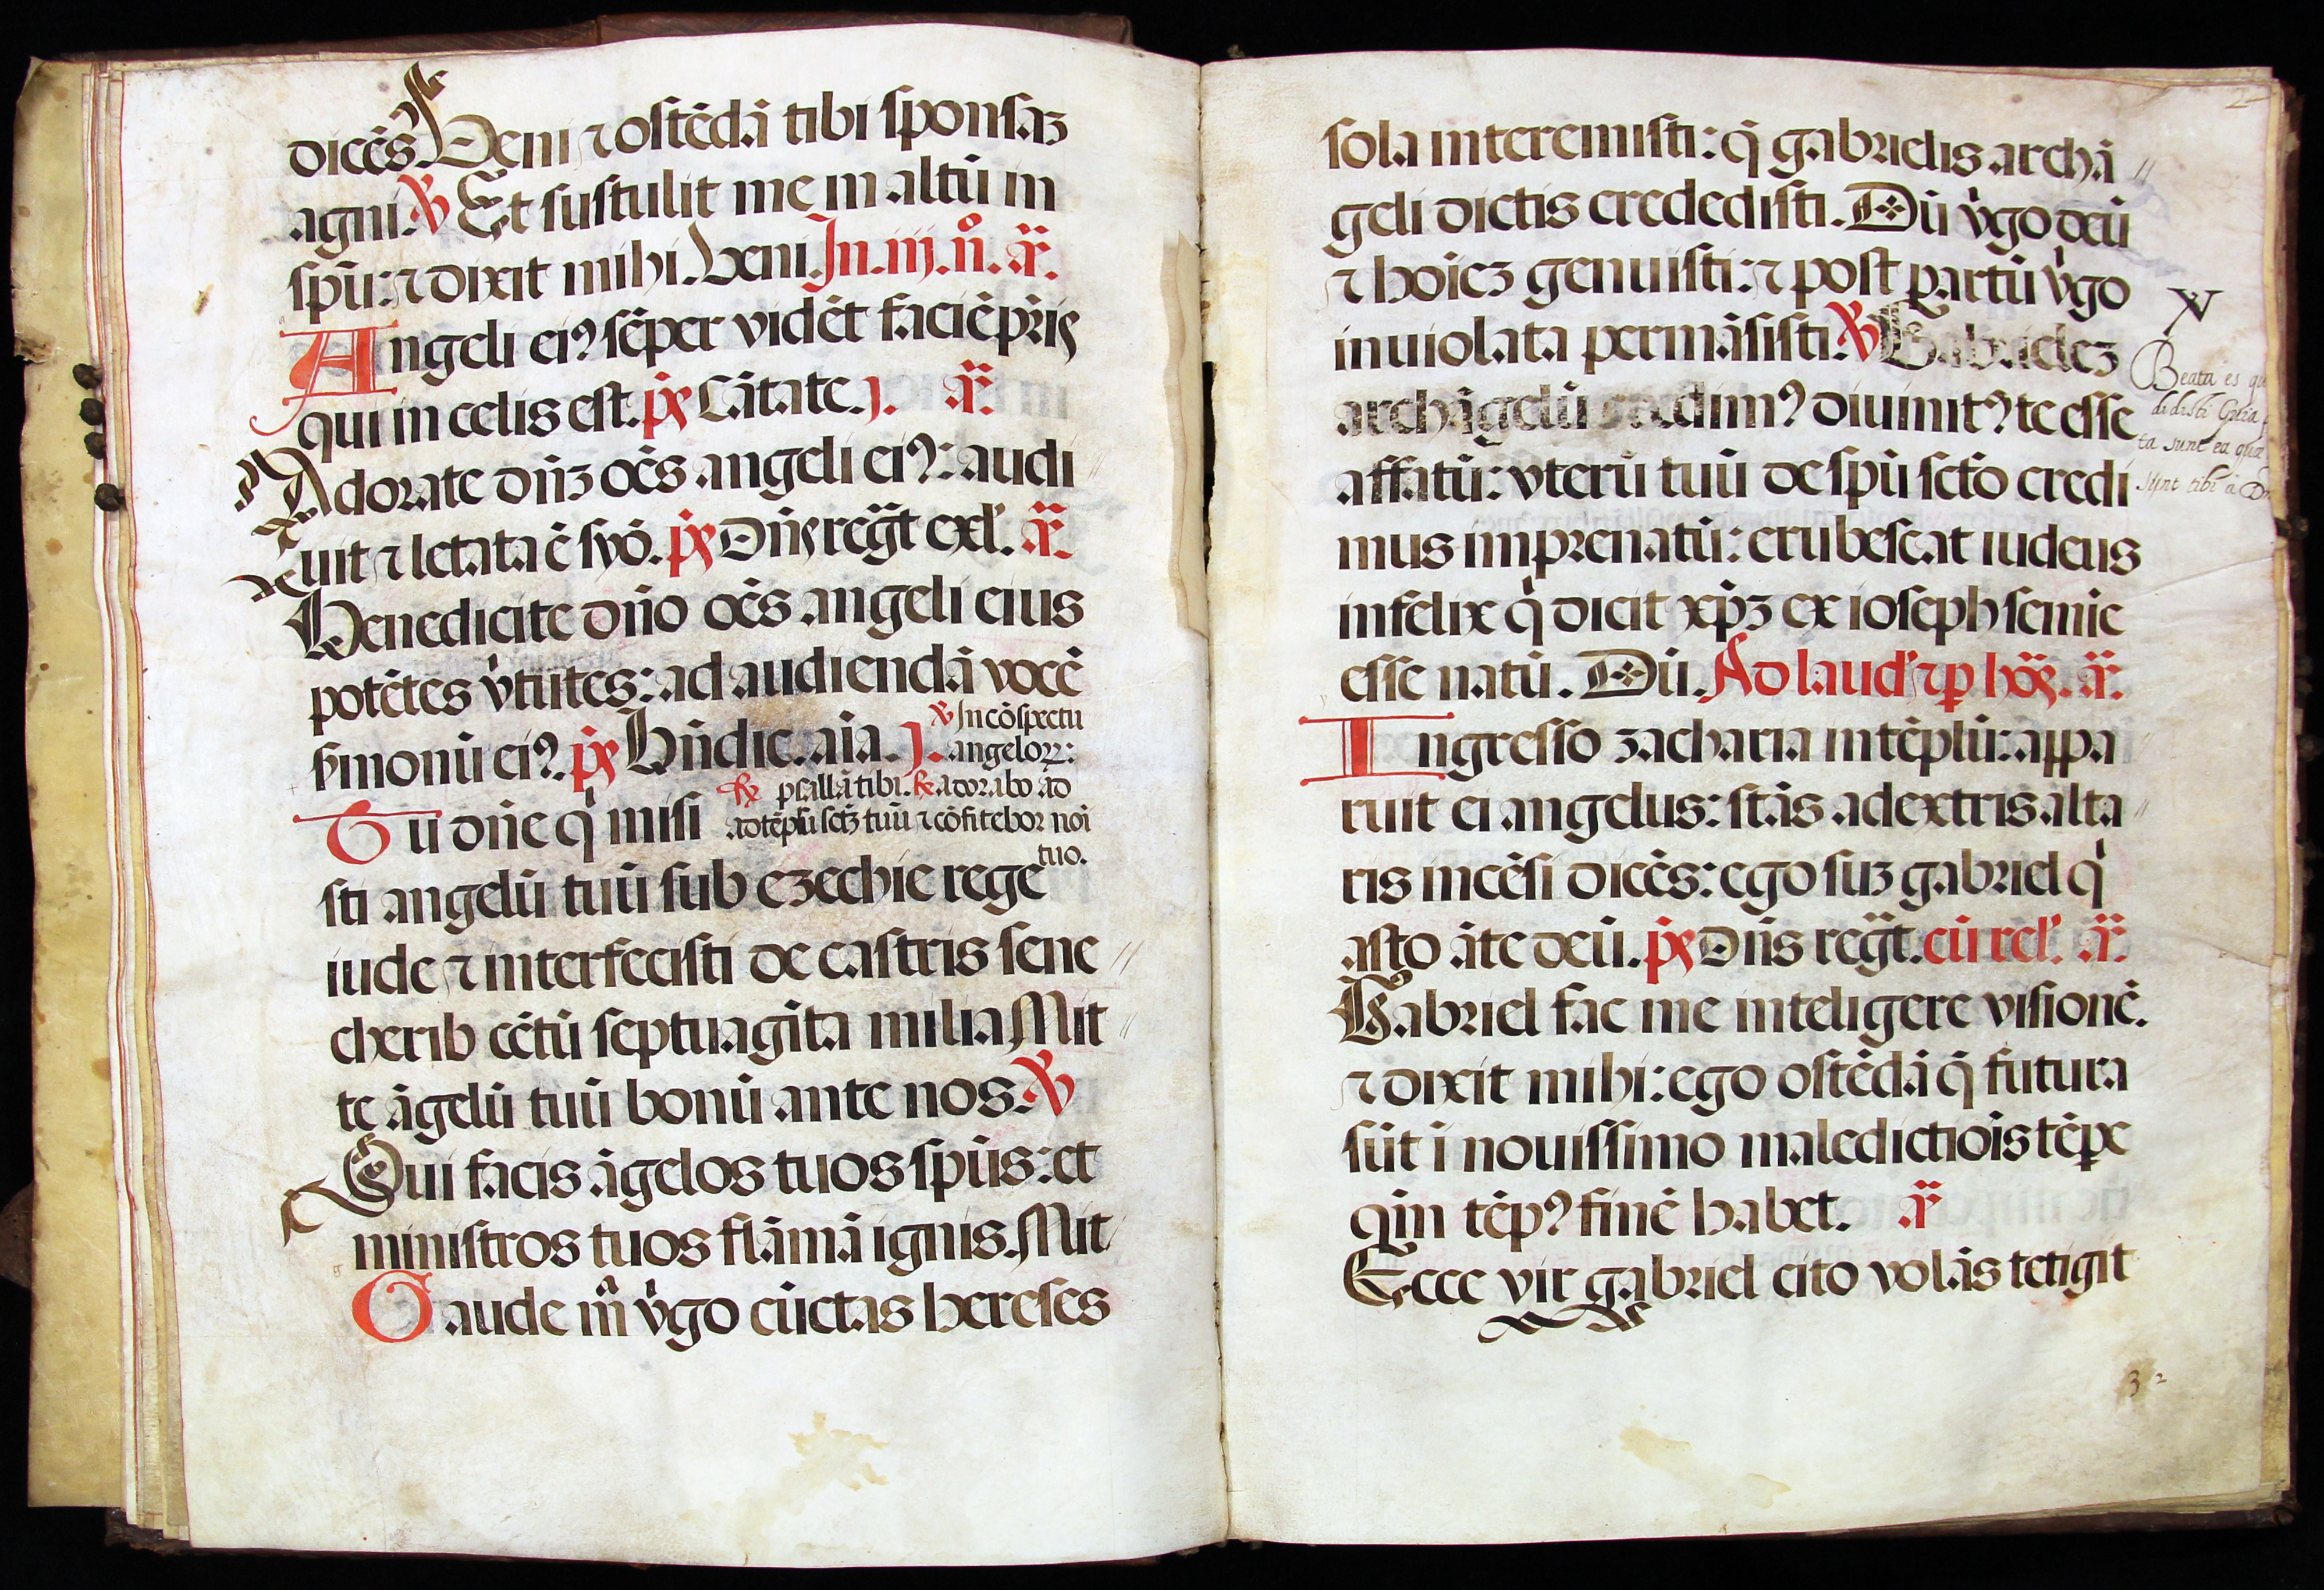 dicēs Veni ⁊ ostēdā tibi sponsaꝫ
agni. ℣ Et sustulit me in altū in
spū: ⁊ dixit mihi. Veni. In .iij. nͦ. añ.
Angeli eiꝰ sēper vidēt faciē pr̄is
qui in celis est. p̄s Cātate. j. añ.
Adorate dn̄ꝫ oēs angeli eiꝰ: audi
uit ⁊ letata ē syō. p̄s Dn̄s regͣt exl'. añ.
Benedicite dn̄o oēs angeli eius
potētes v̓tutes: ad audiendā vocē
s̓monū eiꝰ. p̄s Bn̄dic. aīa. j. ℣ In cōspectu
angeloꝝ:
psallā tibi. ℟ adorabo ad
Tu dn̄e qͥ misi ad tēplū sctꝫ tuū ⁊ cōfitebor noī
tuo.
sti angelū tuū sub ezechie rege
iude ⁊ interfecisti de castris sene
cherib cētū septuagīta milia Mit
te āgelū tuū bonū ante nos. ℣
Qui facis āgelos tuos spūs: et
ministros tuos flāmā ignis. Mit
Gaude mͣ v̓go cūctas hereses
sola interemisti: q̄ gabrielis archā
geli dictis credidisti. Dū v̓go deū
⁊ hoīeꝫ genuisti: ⁊ post partū v̓go
inuiolata permāsisti. ℣ Gabrieleꝫ
archāgelū scdimꝰ diuinitꝰ te esse
affatū: vterū tuū de spū scto credi
mus imprenatū: erubescat iudeus
infelix qͥ dicit xp̄ꝫ ex ioseph semie
esse natū. Dū. Ad laud' ⁊ ꝑ hoꝝ. añ.
Ingresso zacharia in tēplū: appa
ruit ei angelus: stās a dextris alta
ris incēsi dicēs: ego suꝫ gabriel qͥ
asto āte deū. p̄s Dn̄s regͣt. cū rel'. añ.
Gabriel fac me inteligere visionē.
⁊ dixit mihi: ego ostēdā q̄ futura
sūt ī nouissimo maledictiōis tēpe
qm̄ tēpꝰ finē habet. añ
Ecce vir gabriel cito volās tetigit
℣
Beata es
didisti
ta sunt ea quæ
sunt tibi à
2
3 2